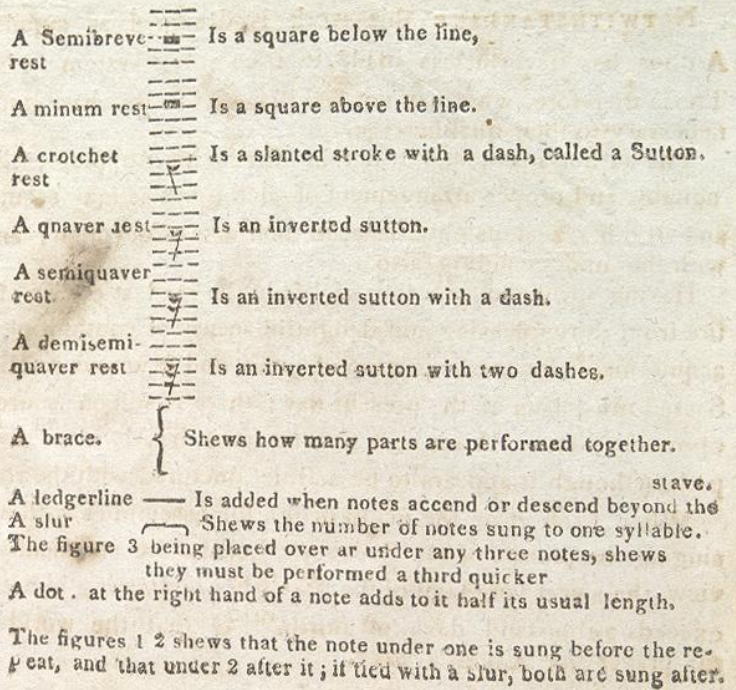 A Semibreve Is a square below the line,
rest
A minum rest Is a square above the line.
A crotchet Is a slanted stroke with a dash, called a Sutton.
rest
A qnaver rest Is an inverted sutton.
A semiquaver
rest Is an inverted sutton with a dash.
A demisemi-
quaver rest Is an inverted sutton with two dashes.
A brace. { Shews how many parts are performed together.
stave.
A ledgerline — Is added when notes accend or descend beyond the
A slur Shews the number of notes sung to one syllable.
The figure 3 being placed over ar under any three notes, shews
they must be performed a third quicker
A dot . at the right hand of a note adds to it half its usual length.
The figures 1 2 shews that the note under one is sung before the re-
peat, and that under 2 after it ; if tied with a slur, both are sung after.